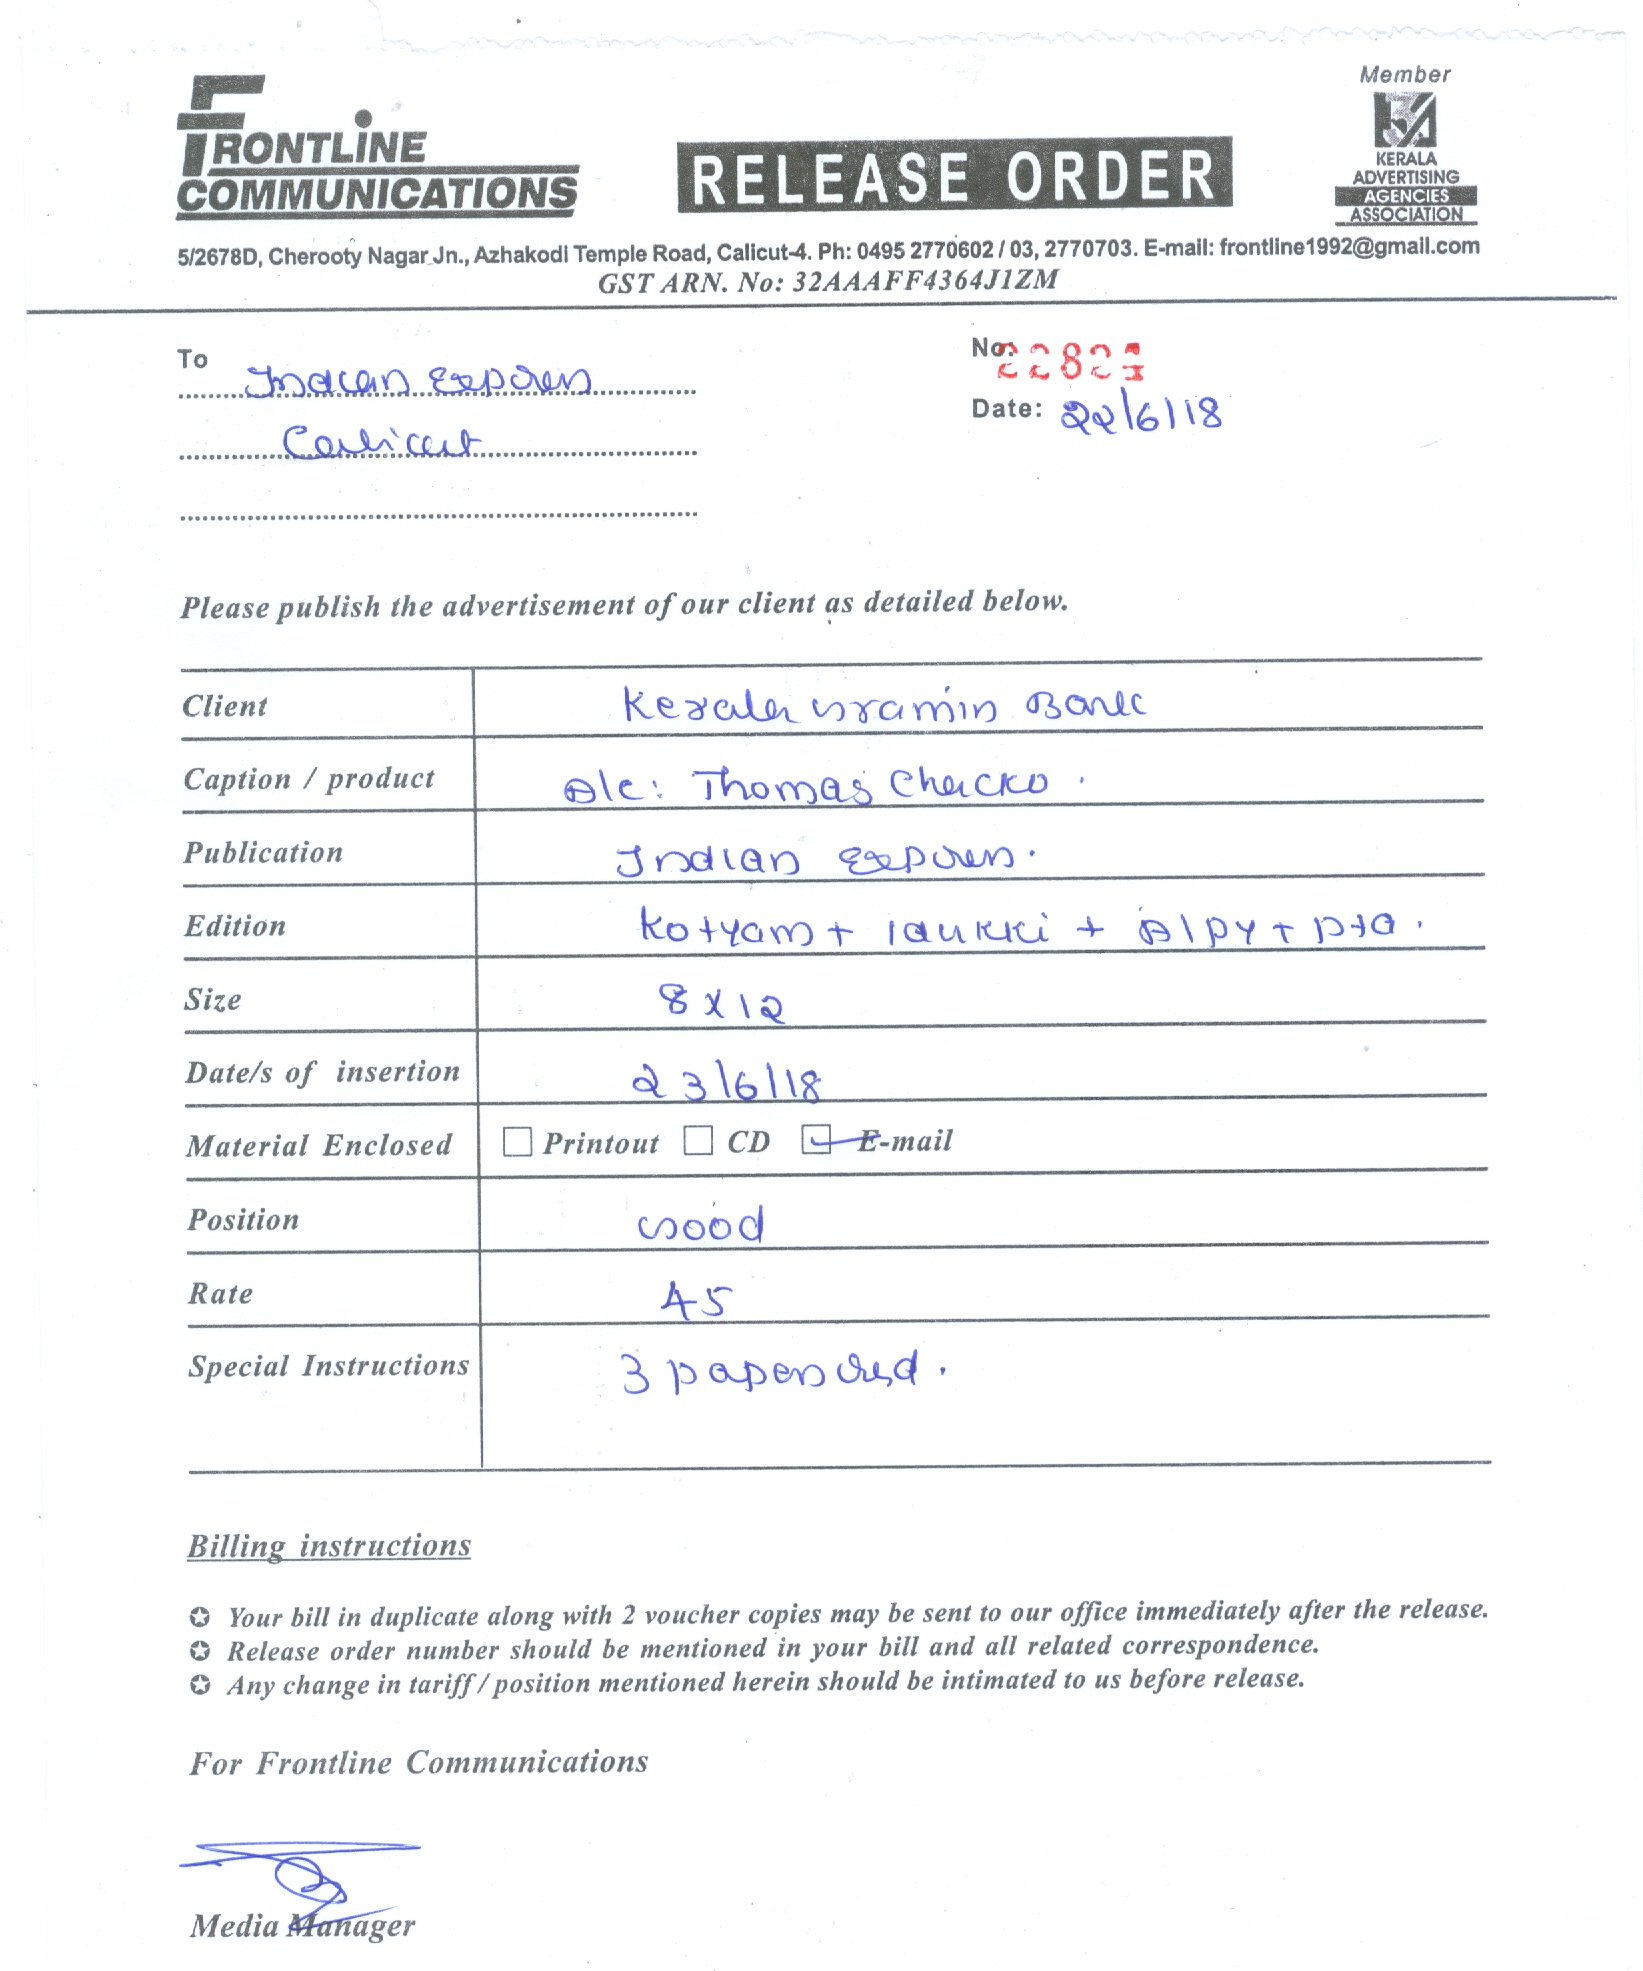 FRONTLINE
COMMUNICATIONS
RELEASE ORDER
Member
KERALA
ADVERTISING
AGENCIES
ASSOCIATION
5/2678D, Cherooty Nagar Jn., Azhakodi Temple Road, Calicut-4. Ph: 0495 2770602 / 03, 2770703. E-mail: frontline1992@gmail.com
GST ARN. No: 32AAAFF4364J1ZM
To Indian Express
No:
Calicut
Date: 22/6/18
Please publish the advertisement of our client as detailed below.
Client Kerala Gramin Bank
Caption / product A/c: Thomas Chacko.
Publication Indian Express.
Edition Kotyam + Idukki + Alpy + Pta.
Size 8 x 12
Date/s of insertion 23/6/18
Material Enclosed Printout CD E-mail
Position Good
Rate 45
Special Instructions 3 papers
Billing instructions
Your bill in duplicate along with 2 voucher copies may be sent to our office immediately after the release.
Release order number should be mentioned in your bill and all related correspondence.
Any change in tariff / position mentioned herein should be intimated to us before release.
For Frontline Communications
Media Manager